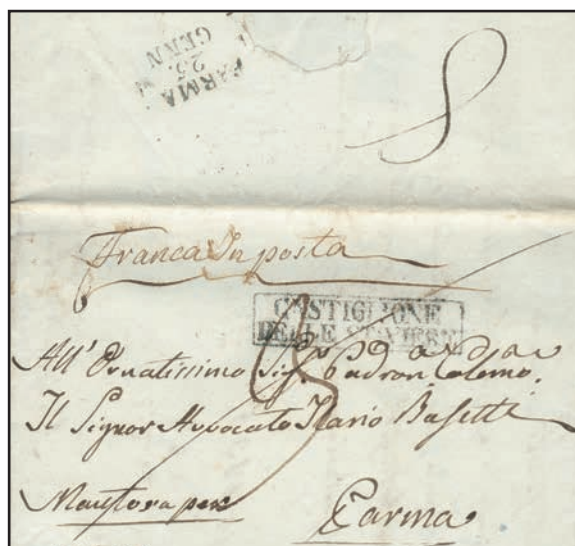 PARMA
25.
GENN
8
Franca In posta
CASTIGLIONE
DELLE STIVIERE
All' Ornatissimo Sig.r Padron Colmo.
Il Signor Avvocato Ilario Basetti
Mantova per
Parma